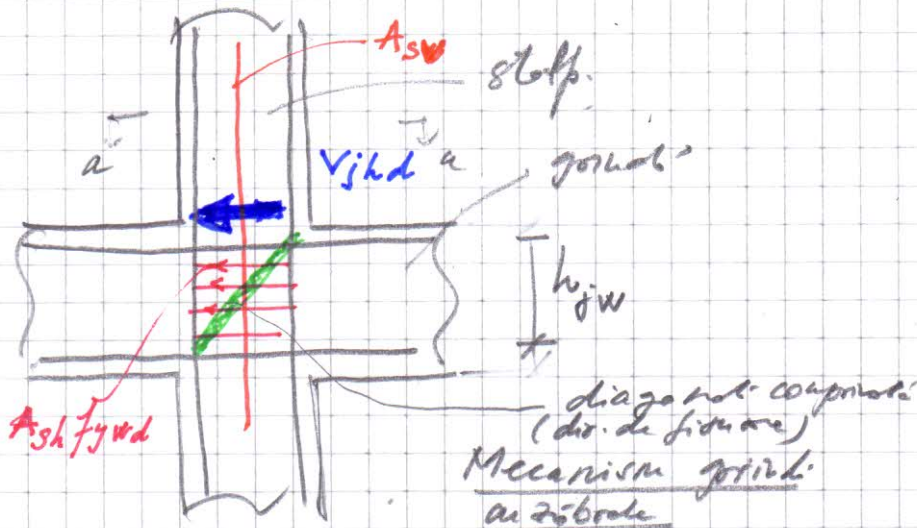 Asv
stâlp.
a
a
Vjhd
grindă
hjw
Ash fywd
diagonală comprimată
(dir. de fisurare)
Mecanism grindă
cu zăbrele